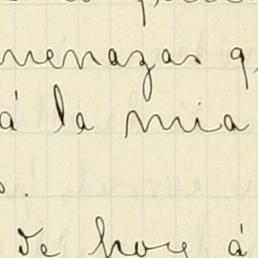 menazas q
á la mia
de hoy á